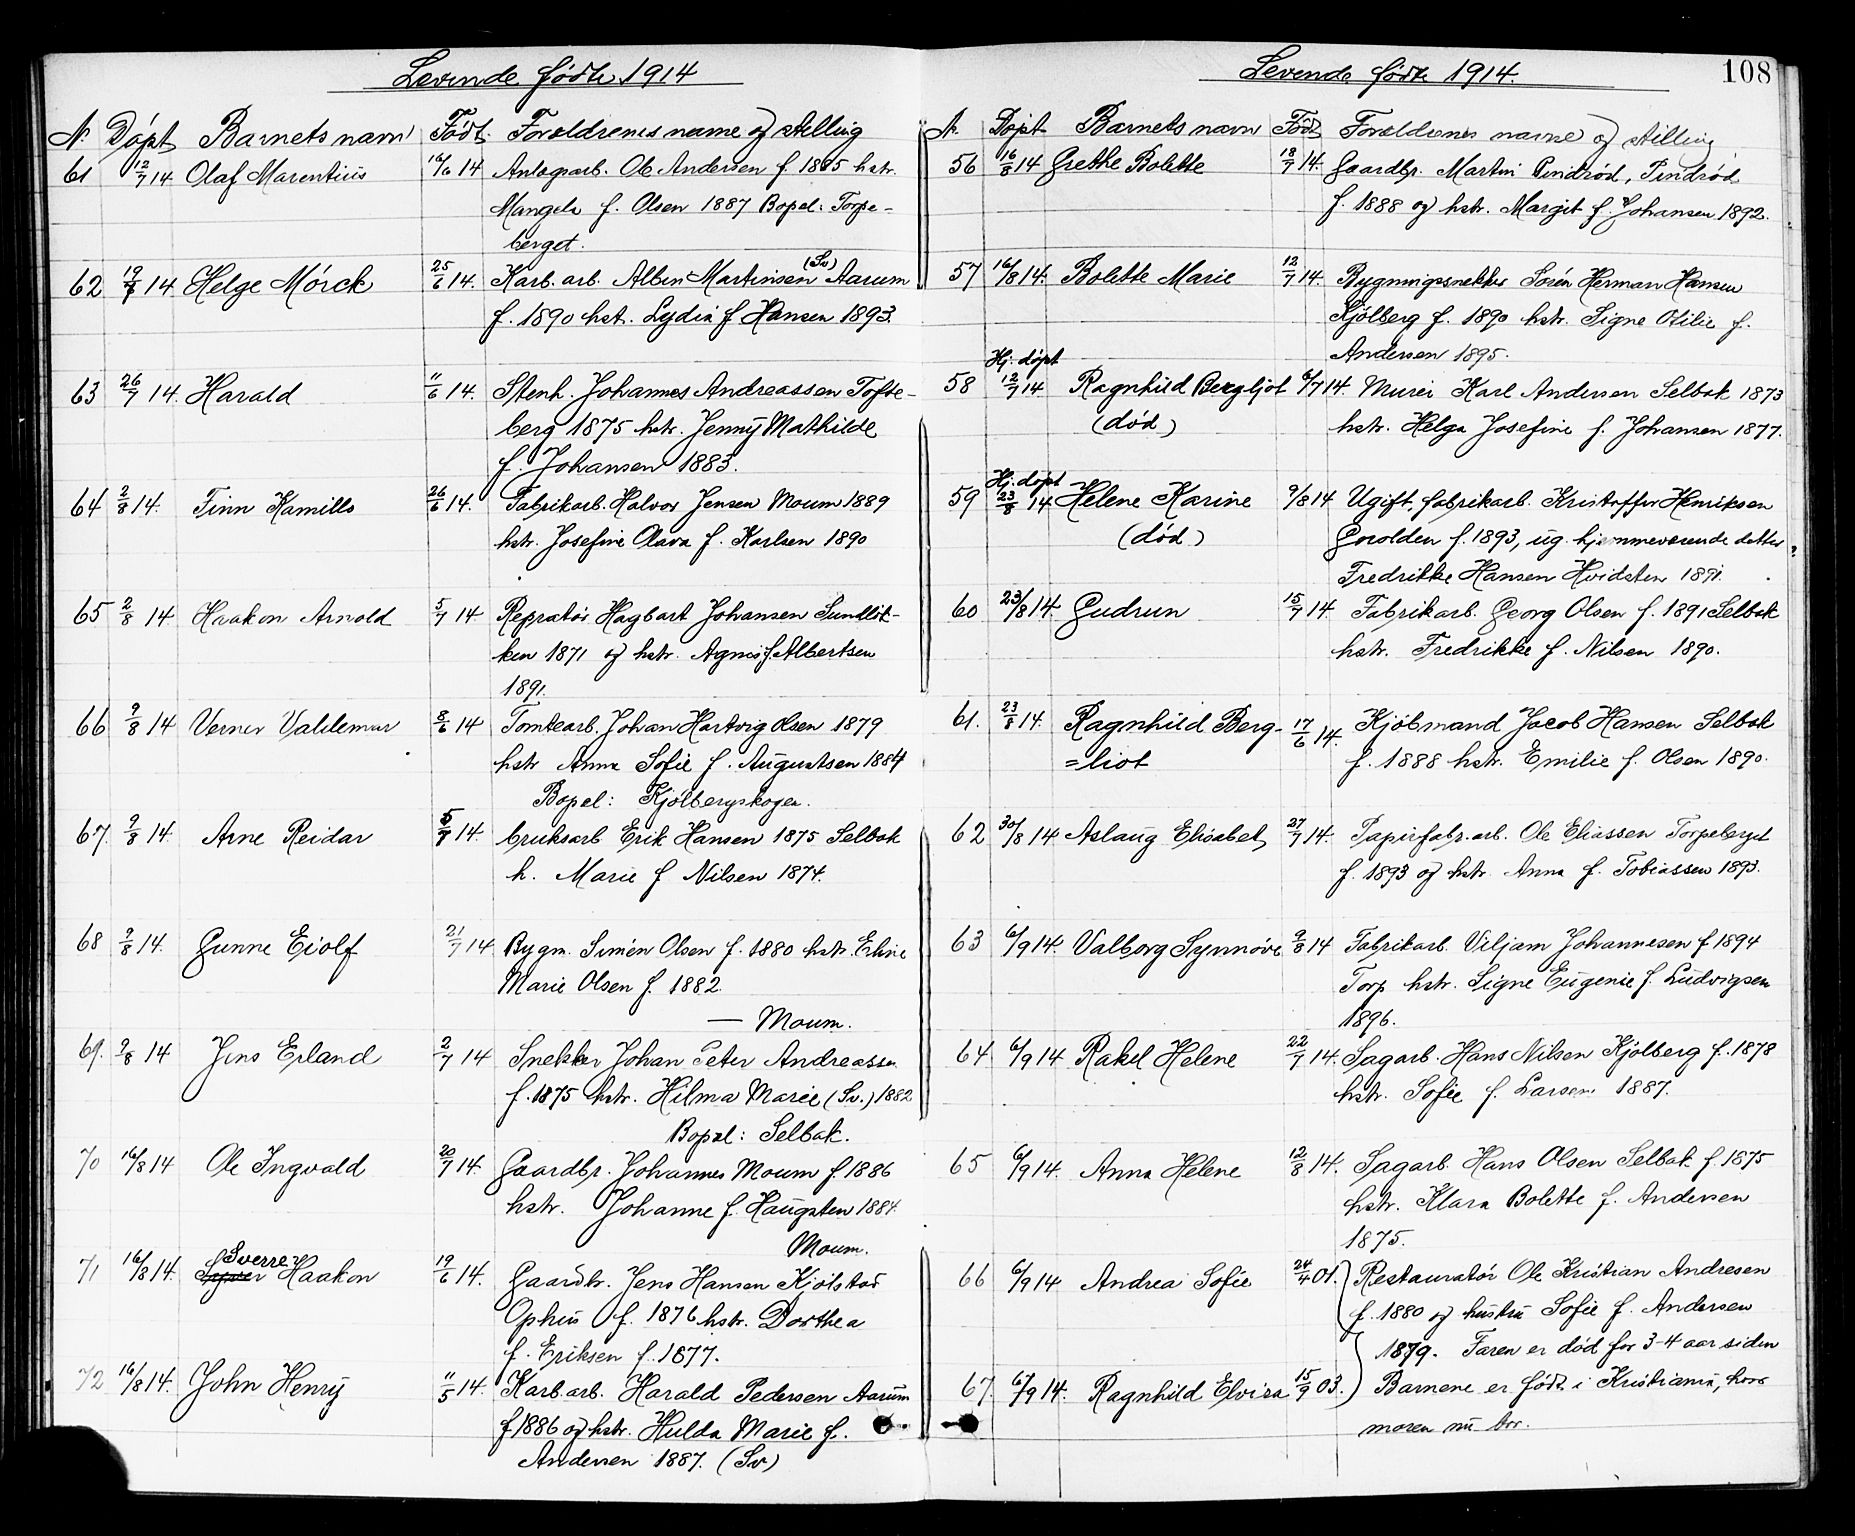 Levende födte 1914
N. Döpt Barnets navn Födt. Forældrenes navne og stilling
61 12/7 14 Olaf Marentius 16/6 14 Anlægsarb. Ole Andersen f. 1885 hstr.
f. Olsen 1887 Bopel: Torpe-
berget.
62 19/7 14 Helge Mörck 25/6 14. Karb. arb. Albin Martinsen (Sv) Aarum
f. 1890 hst. Lydia f Hansen 1893.
63 26/7 14. Harald 11/6 14. Stenh. Johannes Andreassen Tofte-
berg 1875 hstr. Jenny Mathilde
f. Johansen 1883.
64 2/8 14. Finn Kamillo 26/6 14. Fabrikarb. Halvor Jensen Moum 1889
hstr. Josefine Olava f. Karlsen 1890
65 2/8 14 Haakon Arnold 5/7 14 Repratör Hagbart Johansen Sundlök-
ken 1871 og hstr. Agnes f Albertsen
1891.
66 9/8 14 Verner Valdemar 8/6 14 Tomtearb. Johan Hartvig Olsen 1879
hstr Anna Sofie f. Augustsen 1884
Bopel: Kjölbergskogen.
67. 9/8 14. Arne Reidar 5/7 14. bruksarb Erik Hansen 1875 Selbak
h. Marie f Nilsen 1874.
68 9/8 14. Gunne Eiolf 21/7 14 Bygm. Simén Olsen f. 1880 hstr. Eline
Marie Olsen f. 1882.
— Moum.
69. 9/8 14 Jens Erland 2/7 14 Snekker Johan Peter Andreassen
f. 1875 hstr. Hilma Marie (Sv.) 1882
Bopel: Selbak.
70 16/8 14 Ole Ingvald 20/7 14 Gaardbr. Johannes Moum f. 1886
hstr. Johanne f. Haugsten 1884.
Moum.
71 16/8 14. Sverre Haakon 19/6 14. Gaardbr. Jens Hansen Kjölstad
Ophus f. 1876 hstr. Dorthea
f. Eriksen f. 1877.
72 16/8 14. John Henry 11/5 14. Karb. arb. Harald Pedersen Aarum
f 1886 og hstr. Hulda Marie f.
Andersen 1887. (Sv)
Levende födte 1914. 108
N. Döpt Barnets navn Födt Forældrenes navne og stilling
56 16/8 14 Grethe Bolette 18/7 14. Gaardbr. Martin Pindröd, Pindröd
f. 1888 og hstr. Margit f. Johansen 1892.
57 16/8 14. Bolette Marie 12/7 14. Bygningssnekker Sörén Herman Hansen
Kjölberg f. 1890 hstr. Signe Otilie f.
Andersen 1895.
Hj. döpt
58 12/7 14 Ragnhild Bergljot 6/7 14. Murer Karl Andersen Selbak 1873
(död) hstr. Helga Josefine f. Johansen 1877.
Hj. döpt
59 23/8 14 Helene Karine 9/8 14 Ugift. fabrikarb. Kristoffer Henriksen
(död) f. 1893, ug. hjemmeværende datter
Fredrikke Hansen Hvidsten 1891.
60 23/8 14. Gudrun 15/7 14 Fabrikarb. Georg Olsen f. 1891 Selbak
hstr. Fredrikke f. Nilsen 1890.
61. 23/8 14. Ragnhild Berg- 17/6 14. Kjöbmand Jacob Hansen Selbak
=liot f. 1888 hstr. Emilie f. Olsen 1890.
62 30/8 14 Aslaug Elisabet 27/7 14. Papirfabr. arb. Ole Eliassen Torpeberget
f. 1893 og hstr. Anna f. Tobiassen 1893.
63 6/9 14. Valborg Synnöve 9/8 14 Fabrikarb. Viljam Johannesen f 1894
Torp hstr. Signe Eugenie f. Ludvigsen
1896.
64 6/9 14 Rakel Helene 22/7 14. Sagarb. Hans Nilsen Kjölberg f. 1878
hstr. Sofie f. Larsen 1887.
65 6/9 14. Anna Helene 12/8 14. Sagarb. Hans Olsen Selbak f. 1875
hstr. Klara Bolette f. Andersen
1875.
66 6/9 14 Andrea Sofie 24/4 01. Restauratör Ole Kristian Andresen
f. 1880 og hustru Sofie f. Andersen
1879. Faren er död for 3-4 aar siden
67. 6/9 14. Ragnhild Elvira 15/9 03. Barnene er födt i Kristiania, hvor
moren nu bor.